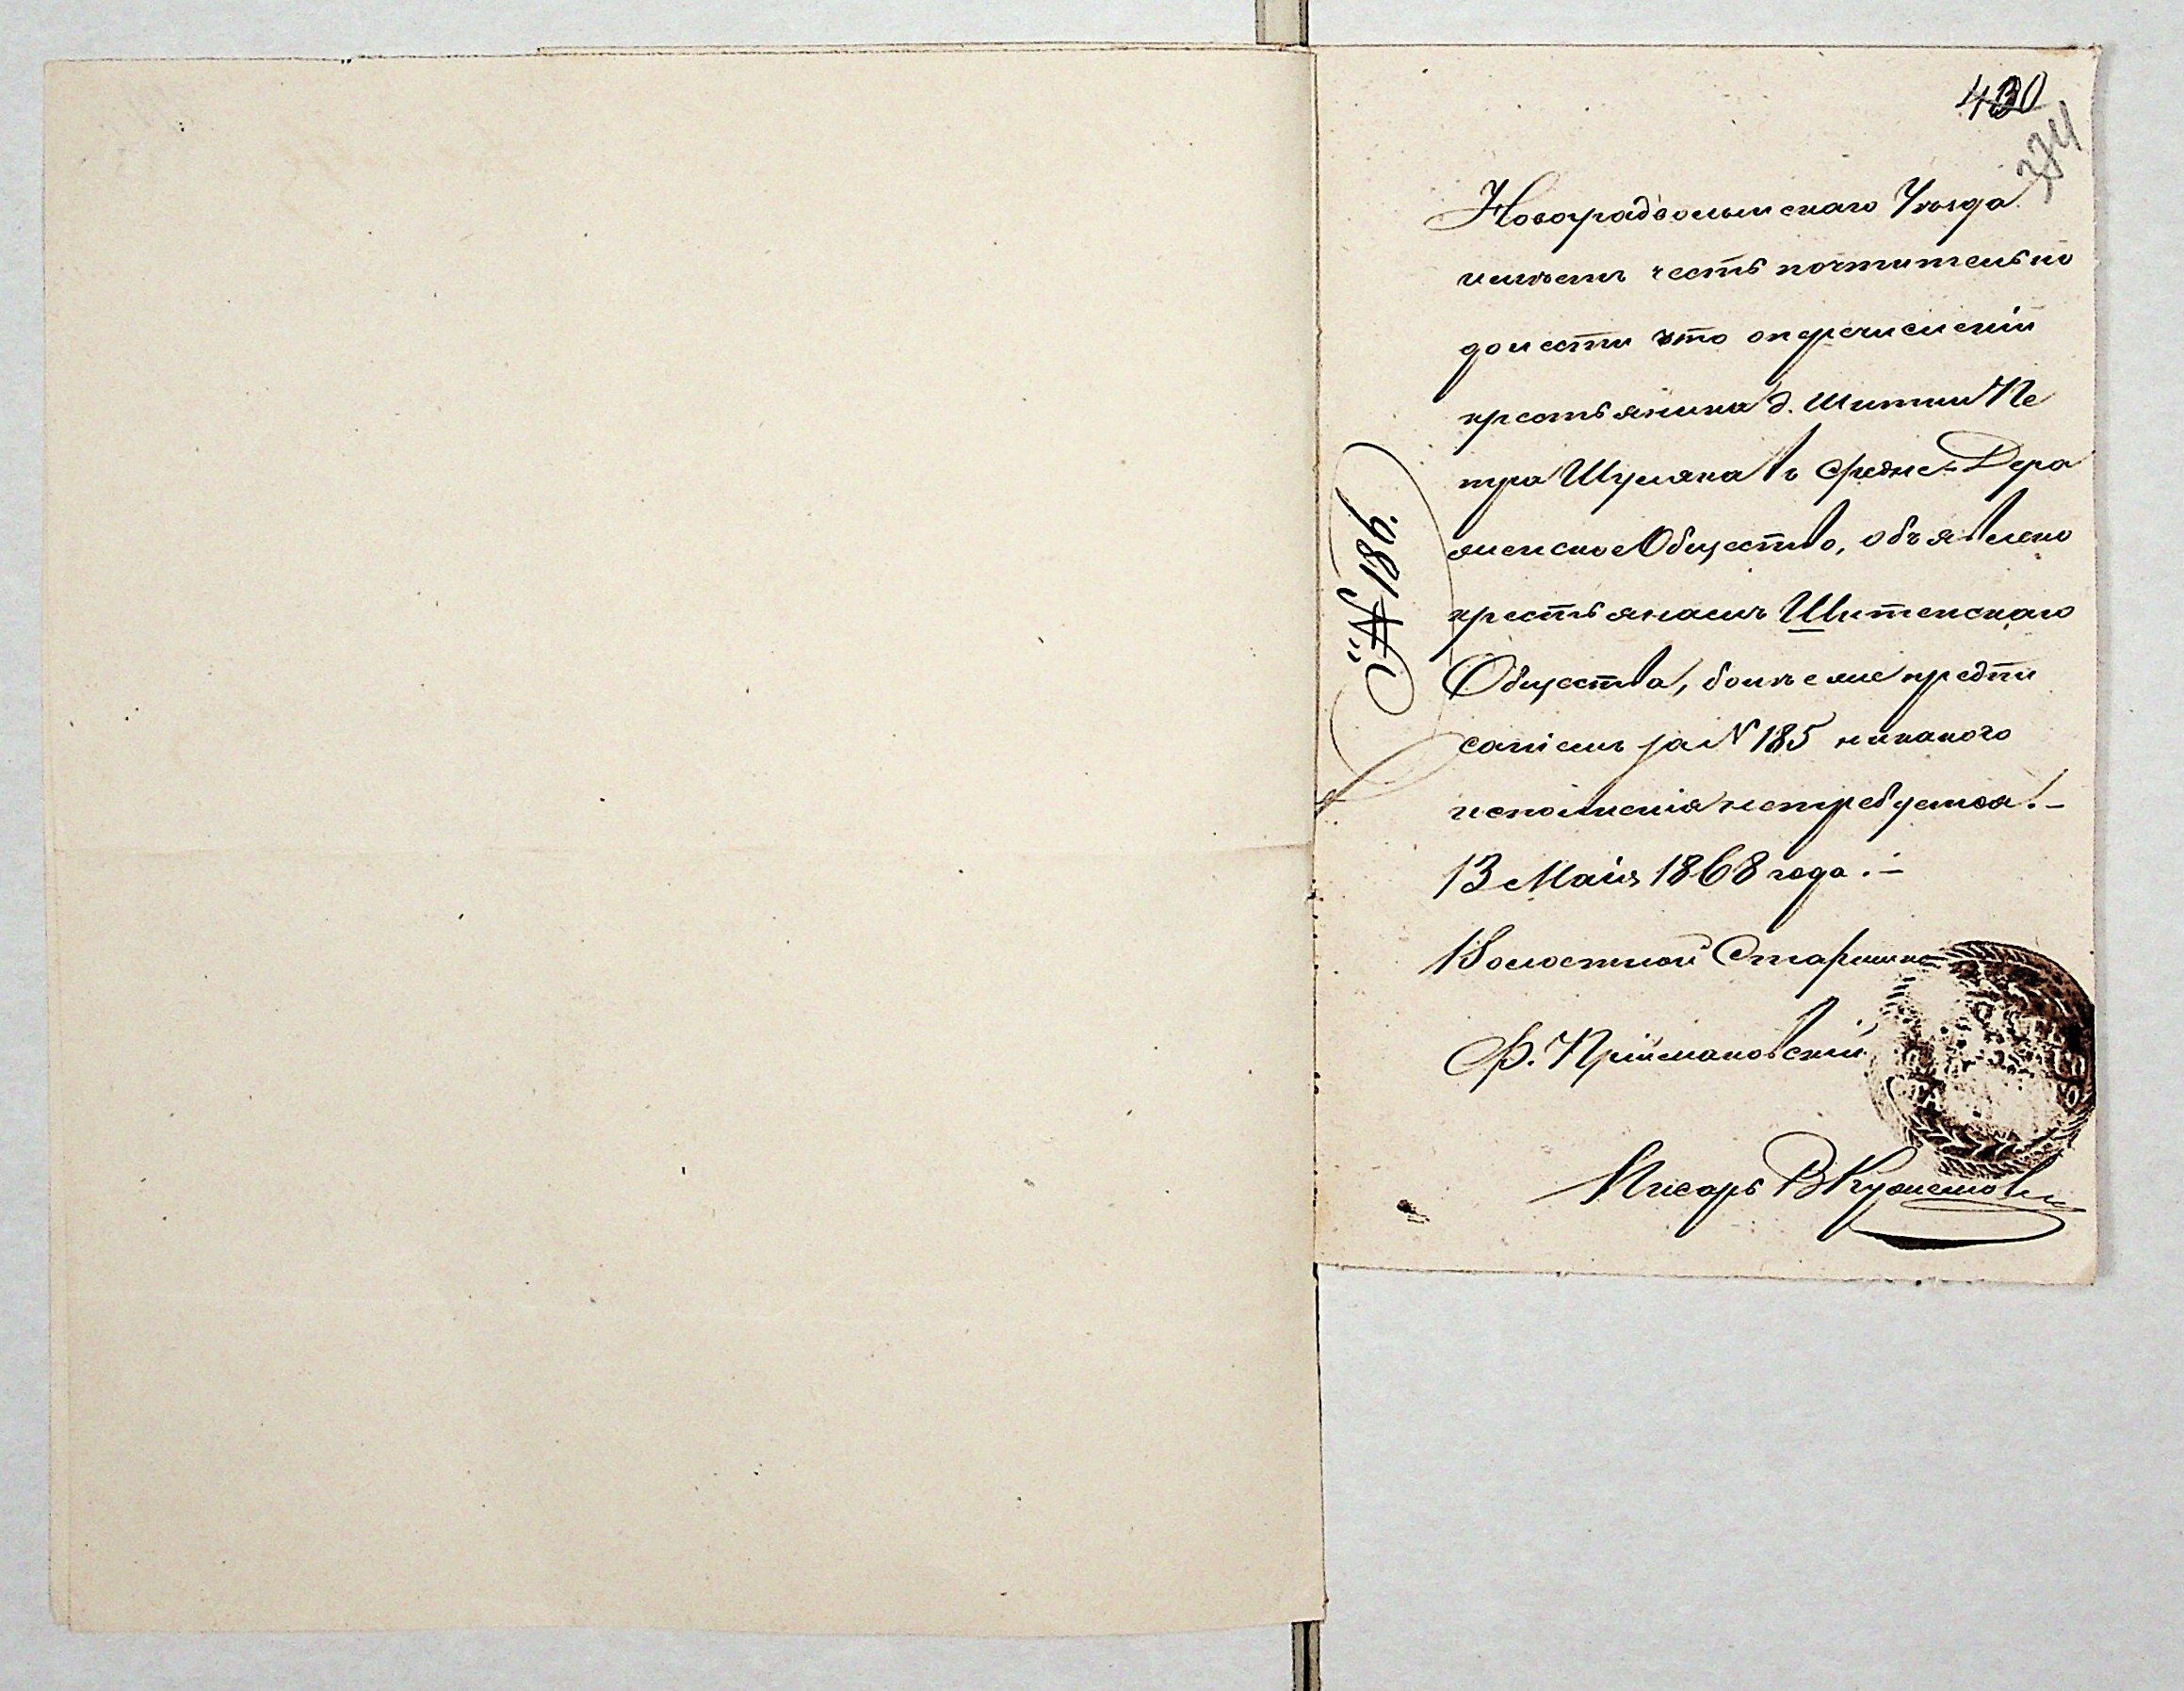 430
374
Новоградволынскаго Уѣзда
имѣетъ честь почтительно
донести что оперечисленіи
крестьянина д. Шитни Пе
тра Шуляка въ Средне-Дера
жненское Общество, объявлено
крестьянамъ Шитенскаго
Общества, болѣе же предпи
саніемъ за № 185 никакого
исполненія нетребуется.-
13 Маія 1868 года.-
Волостной Старшина
Ф. Пріймаковскій
Писарь В